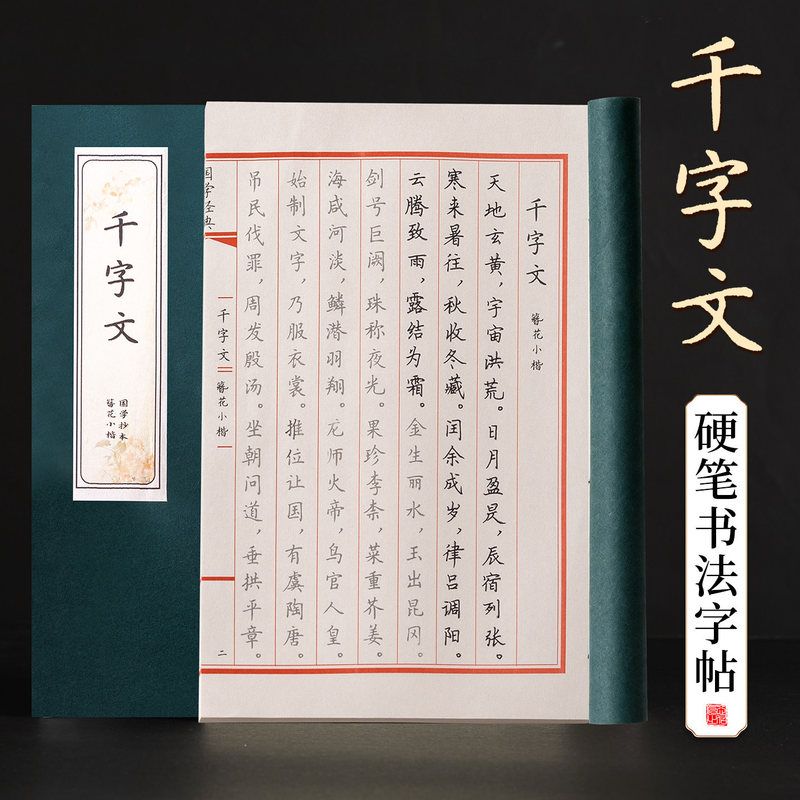 千字文
硬笔书法字帖
千字文
簪花小楷
天地玄黄，宇宙洪荒。日月盈昃，辰宿列张。
寒来暑往，秋收冬藏。闰余成岁，律吕调阳。
云腾致雨，露结为霜。金生丽水，玉出昆冈。
剑号巨阙，珠称夜光。果珍李柰，菜重芥姜。
海咸河淡，鳞潜羽翔。龙师火帝，鸟官人皇。
始制文字，乃服衣裳。推位让国，有虞陶唐。
吊民伐罪，周发殷汤。坐朝问道，垂拱平章。
国学经典
千字文
簪花小楷
二
千字文
国学抄本
簪花小楷